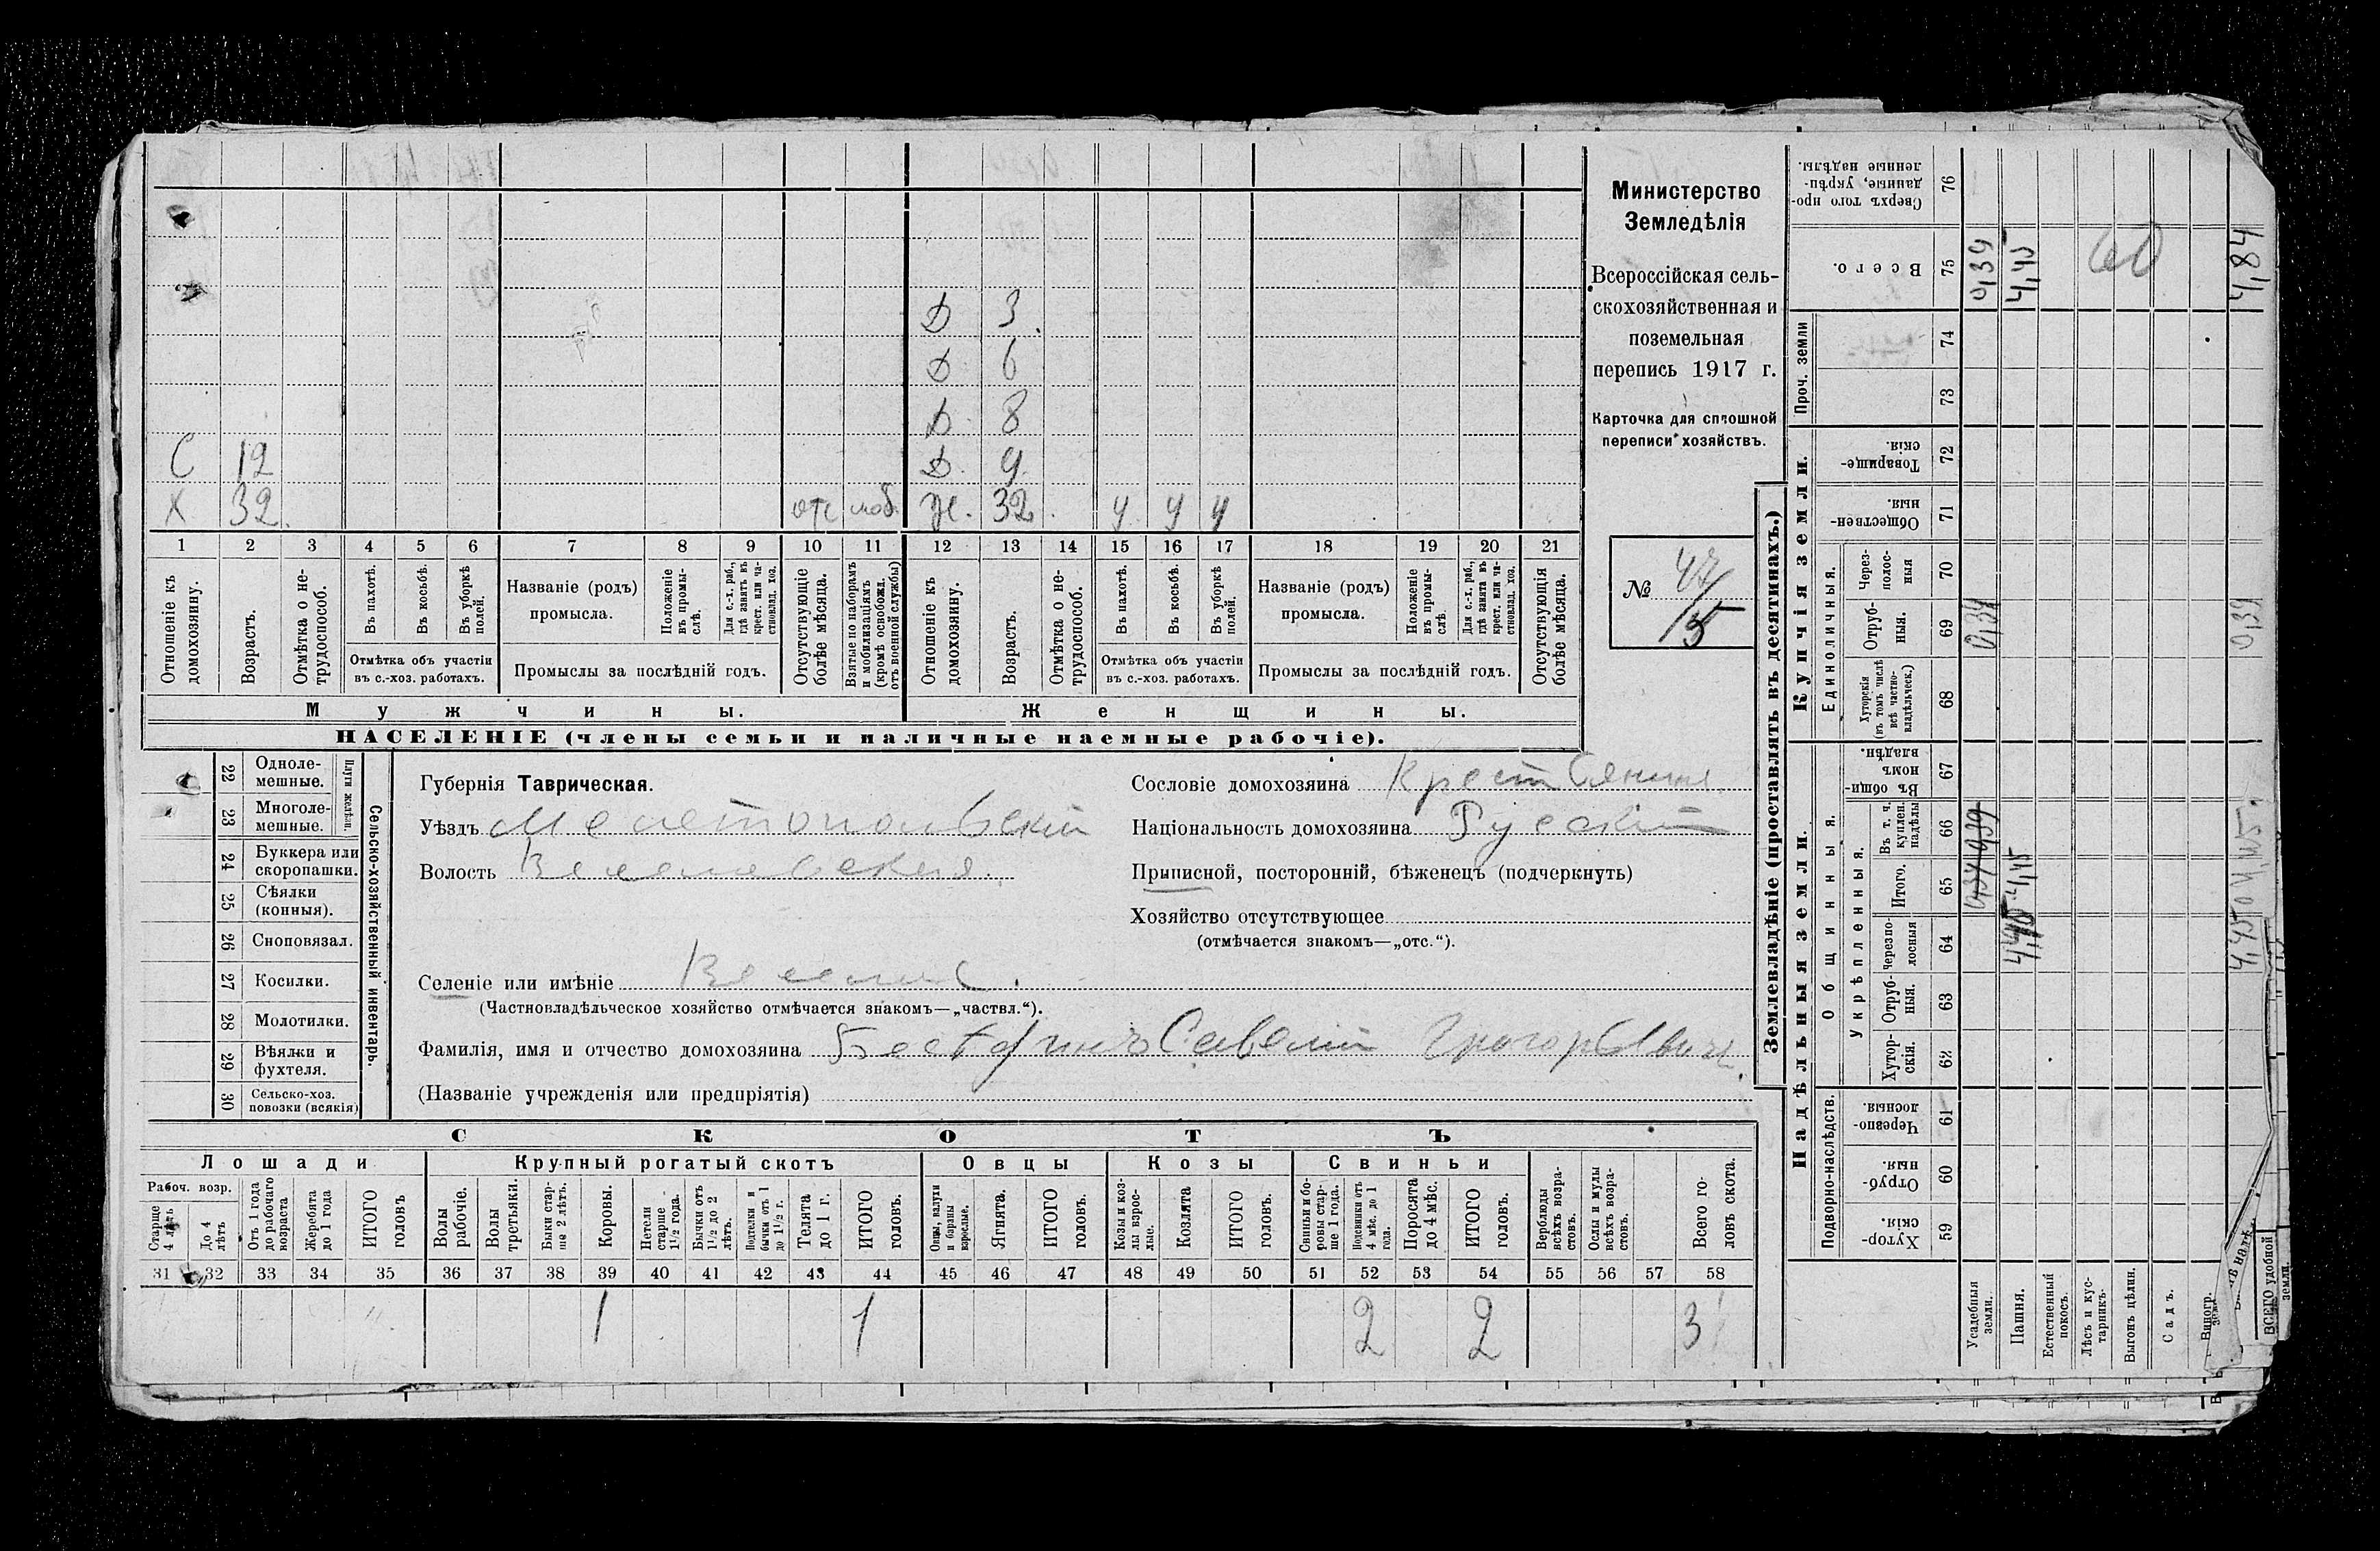 Министерство
Земледѣлія
Всероссійская сель-
скохозяйственная и
поземельная
перепись 1917 г.
Карточка для сплошной
переписи хозяйствъ.
№ 47
15
Д 3
Д 6
Д 8
С 12 Д. 9
Х 32 отс моб. Ж. 32 у у у
1 2 3 4 5 6 7 8 9 10 11 12 13 14 15 16 17 18 19 20 21
Отношеніе къ домохозяину.
Возрастъ.
Отмѣтка о не-трудоспособ.
Въ пахотѣ.
Въ косьбѣ.
Въ уборкѣ полей.
Отмѣтка объ участіи
въ с.-хоз. работахъ.
Названіе (родъ)
промысла.
Положеніе въ промы-слѣ.
Для с.-х. раб., гдѣ занятъ въ крест. или ча-стновлад. хоз.
Промыслы за послѣдній годъ.
Отсутствующіе болѣе мѣсяца.
Взятые по наборамъ и мобилизаціямъ (кромѣ освобожд. отъ военной службы)
Отношеніе къ домохозяину.
Возрастъ.
Отмѣтка о не-трудоспособ.
Въ пахотѣ.
Въ косьбѣ.
Въ уборкѣ полей.
Отмѣтка объ участіи
въ с.-хоз. работахъ.
Названіе (родъ)
промысла.
Положеніе въ промы-слѣ.
Для с.-х. раб., гдѣ занята въ крест. или ча-стновлад. хоз.
Промыслы за послѣдній годъ.
Отсутствующія болѣе мѣсяца.
Мужчины. Женщины.
НАСЕЛЕНІЕ (члены семьи и наличные наемные рабочіе).
22 Одноле-мешные.
23 Многоле-мешные.
Плуги желѣзн.
24 Буккера или скоропашки.
25 Сѣялки (конныя).
26 Сноповязал.
27 Косилки.
28 Молотилки.
29 Вѣялки и фухтеля.
30 Сельско-хоз. повозки (всякія)
Сельско-хозяйственный инвентарь.
Губернія Таврическая.
Уѣздъ Мелитопольскій
Волость
Сословіе домохозяина Крестьянинъ
Національность домохозяина Русскій
Приписной, посторонній, бѣженецъ (подчеркнуть)
Хозяйство отсутствующее
(отмѣчается знакомъ—„отс.“).
Селеніе или имѣніе
(Частновладѣльческое хозяйство отмѣчается знакомъ—„частвл.“).
Фамилія, имя и отчество домохозяина Савелий Григорьевичъ
(Названіе учрежденія или предпріятія)
СКОТЪ
Лошади Крупный рогатый скотъ Овцы Козы Свиньи
Рабоч. возр.
Старше 4 лѣтъ
До 4 лѣтъ
Отъ 1 года до рабочаго возраста
Жеребята до 1 года
ИТОГО головъ
Волы рабочіе.
Волы третьяки.
Быки стар-ше 2 лѣтъ.
Коровы.
Нетели старше 1½ года.
Бычки отъ 1½ до 2 лѣтъ.
Подтелки и бычки отъ 1 до 1½ г.
Телята до 1 г.
ИТОГО головъ.
Овцы, валухи и бараны взрослые.
Ягнята.
ИТОГО головъ.
Козы и коз-лы взрос-лые.
Козлята
ИТОГО головъ.
Свиньи и бо-ровы стар-ше 1 года.
Подсвинки отъ 4 мѣс. до 1 года
Поросята до 4 мѣс.
ИТОГО головъ.
Верблюды всѣхъ возра-стовъ.
Ослы и мулы всѣхъ возра-стовъ.
Всего го-ловъ скота.
31 32 33 34 35 36 37 38 39 40 41 42 43 44 45 46 47 48 49 50 51 52 53 54 55 56 57 58
1 1 2 2 3
Землевладѣніе (проставлять въ десятинахъ.)
Надѣльныя земли. Купчія земли.
Подворно-наслѣдств.
Общинныя.
Укрѣпленныя.
Единоличныя.
Проч. земли
Хутор-скія. 59
Отруб-ныя. 60
Черезпо-лосныя 61
Хутор-скія. 62
Отруб-ныя. 63
Черезпо-лосныя 64
Итого. 65
Въ т. ч. куплен. надѣлы 66
Въ общи-номъ владѣн. 67
Хуторскія (въ томъ числѣ всѣ частно-владѣльческ.) 68
Отруб-ныя. 69
Через-полос-ныя 70
Обществен-ныя 71
Товарище-скія. 72
73
74
Всего. 75
Сверхъ того про-данные, укрѣп-ленные надѣлы. 76
Усадебныя земли.
0,39
Пашня.
4,45 4,45
Естественный покосъ.
Лѣсъ и кус-тарникъ.
60
Выгонъ цѣлин.
Садъ.
Виногр.
ВСЕГО удобной земли.
0,39 4,84